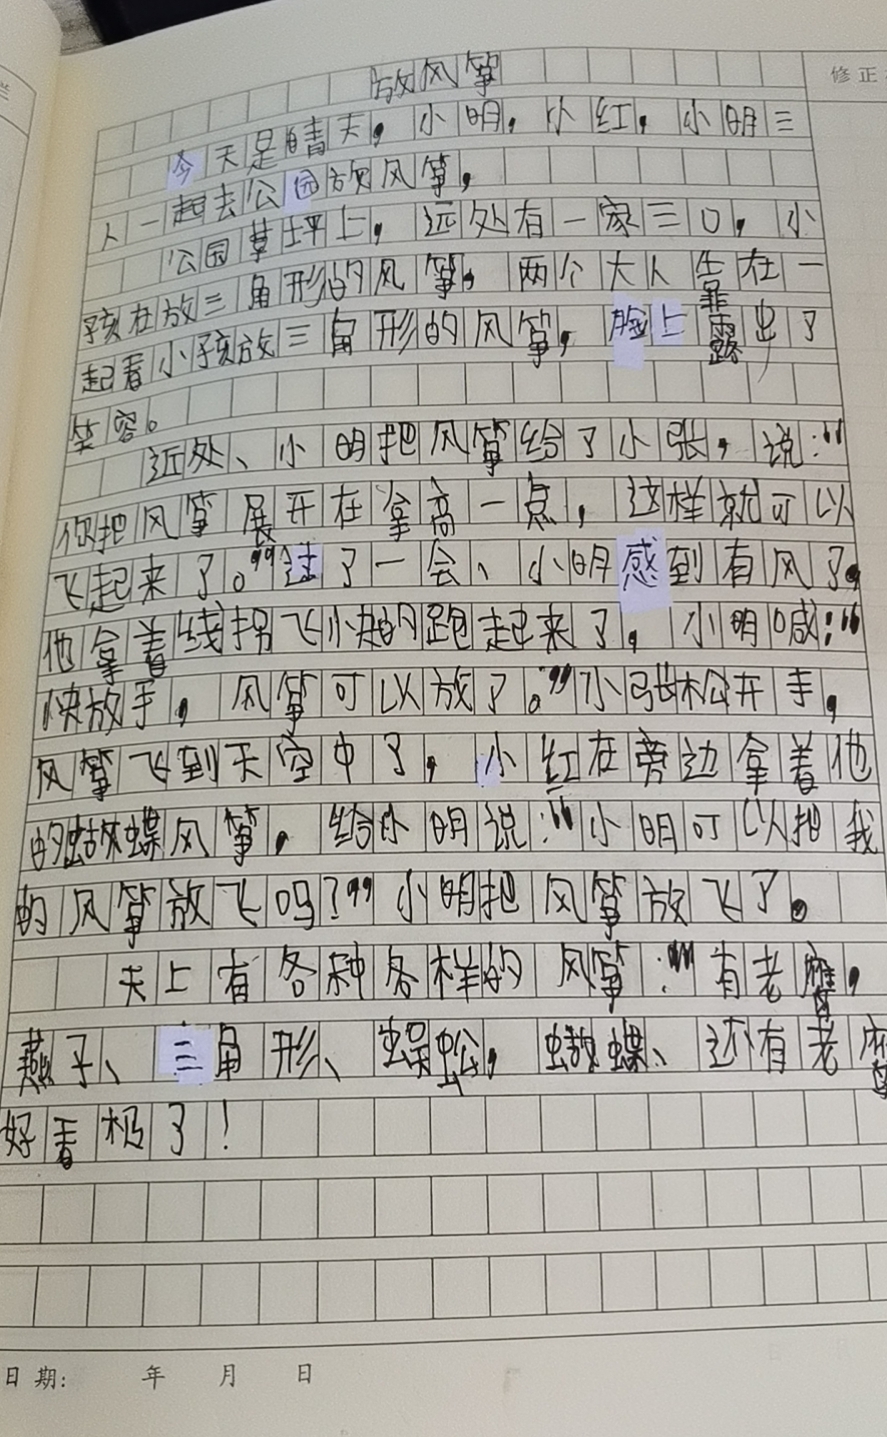 修正
放风筝
今天是晴天，小明，小红，小明三
人一起去公园放风筝，
公园草坪上，远处有一家三口，小
孩在放三角形的风筝，两个大人靠在一
起看小孩放三角形的风筝，脸上露出了
笑容。
近处、小明把风筝给了小张，说：“
你把风筝展开在拿高一点，这样就可以
飞起来了。”过了一会、小明感到有风了，
他拿着线拐飞快的跑起来了，小明喊：“
快放手，风筝可以放了。”小张松开手，
风筝飞到天空中了，小红在旁边拿着他
的蝴蝶风筝，给小明说：“小明可以把我
的风筝放飞吗？”小明把风筝放飞了。
天上有各种各样的风筝：“有老鹰，
燕子、三角形、蜈蚣，蝴蝶、还有老鹰
好看极了！
日期： 年 月 日